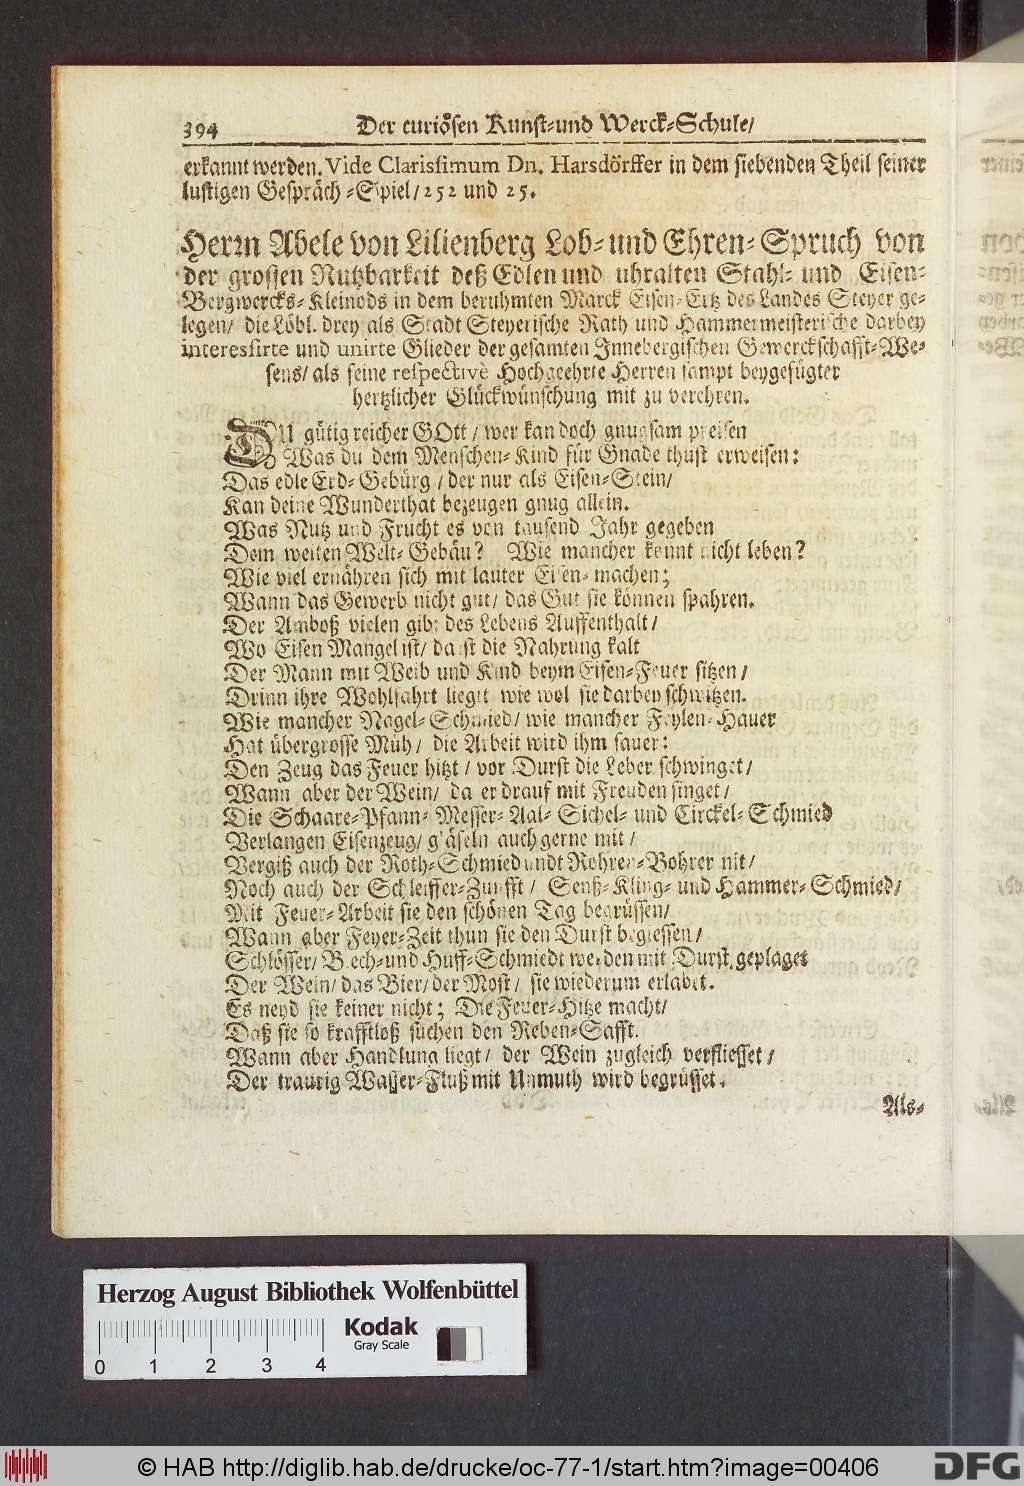 394 Der curiösen Kunst-und Werck-Schule/
erkannt werden. Vide Clarissimum Dn. Harsdörffer in dem siebenden Theil seiner
lustigen Gespräch-Spiel/252 und 25.
Herrn Abele von Lilienberg Lob-und Ehren-Spruch von
der grossen Nutzbarkeit deß Edlen und uhralten Stahl- und Eisen-
Bergwercks-Kleinods in dem berühmten Marck Eisen-Ertz des Landes Steyer ge-
legen/ die Löbl. drey als Stadt Steyerische Rath und Hammermeisterische darbey
interessirte und unirte Glieder der gesamten Innebergischen Gewerckschafft-We-
sens/ als seine respectivè Hochgeehrte Herren sampt beygefügter
hertzlicher Glückwünschung mit zu verehren.
DU gütig reicher GOtt/ wer kan doch gnugsam preisen
Was du dem Menschen-Kind für Gnade thust erweisen:
Das edle Erd-Gebürg/ der nur als Eisen-Stein/
Kan deine Wunderthat bezeugen gnug allein.
Was Nutz und Frucht es von tausend Jahr gegeben
Dem weiten Welt-Gebäu? Wie mancher konnt nicht leben?
Wie viel ernähren sich mit lauter Eisen-machen;
Wann das Gewerb nicht gut/ das Gut sie können spahren.
Der Amboß vielen gibt des Lebens Auffenthalt/
Wo Eisen Mangel ist/ da ist die Nahrung kalt
Der Mann mit Weib und Kind beym Eisen-Feuer sitzen/
Drinn ihre Wohlfahrt liegt wie wol sie darbey schwitzen.
Wie mancher Nagel-Schmied/ wie mancher Feylen-Hauer
Hat übergrosse Müh/ die Arbeit wird ihm sauer:
Den Zeug das Feuer hitzt/ vor Durst die Leber schwinget/
Wann aber der Wein/ da er drauf mit Freuden singet/
Die Schaare-Pfann-Messer-Aal-Sichel- und Circkel-Schmied
Verlangen Eisenzeug/ g'äseln auch gerne mit/
Vergiß auch der Roth-Schmied undt Rohren-Bohrer nit/
Noch auch der Schleiffer-Zunfft/ Senß-Kling- und Hammer-Schmied/
Mit Feuer-Arbeit sie den schönen Tag begrüssen/
Wann aber Feyer-Zeit thun sie den Durst begiessen/
Schlösser/ Blech-und Huff-Schmiedt werden mit Durst geplaget
Der Wein/ das Bier/ der Most/ sie wiederum erlabet.
Es neyd sie keiner nicht; Die Feuer-Hitze macht/
Daß sie so krafftloß suchen den Reben-Safft.
Wann aber Handlung liegt/ der Wein zugleich verfliesset/
Der traurig Wasser-Fluß mit Unmuth wird begrüsset.
Als-
Herzog August Bibliothek Wolfenbüttel
Kodak
Gray Scale
0 1 2 3 4
© HAB http://diglib.hab.de/drucke/oc-77-1/start.htm?image=00406
DFG